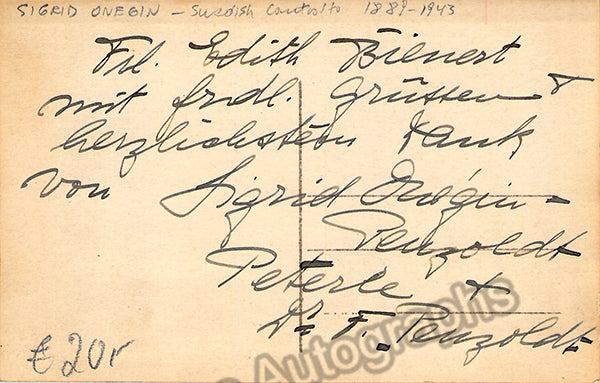 SIGRID ONEGIN – Swedish Contralto 1889-1943
Frl. Edith Bienert
mit frdl. Grüssen &
herzlichstem Dank
von Sigrid Onégin-
Penzoldt
Peterle +
Dr. F. Penzoldt
€20r
Autographs